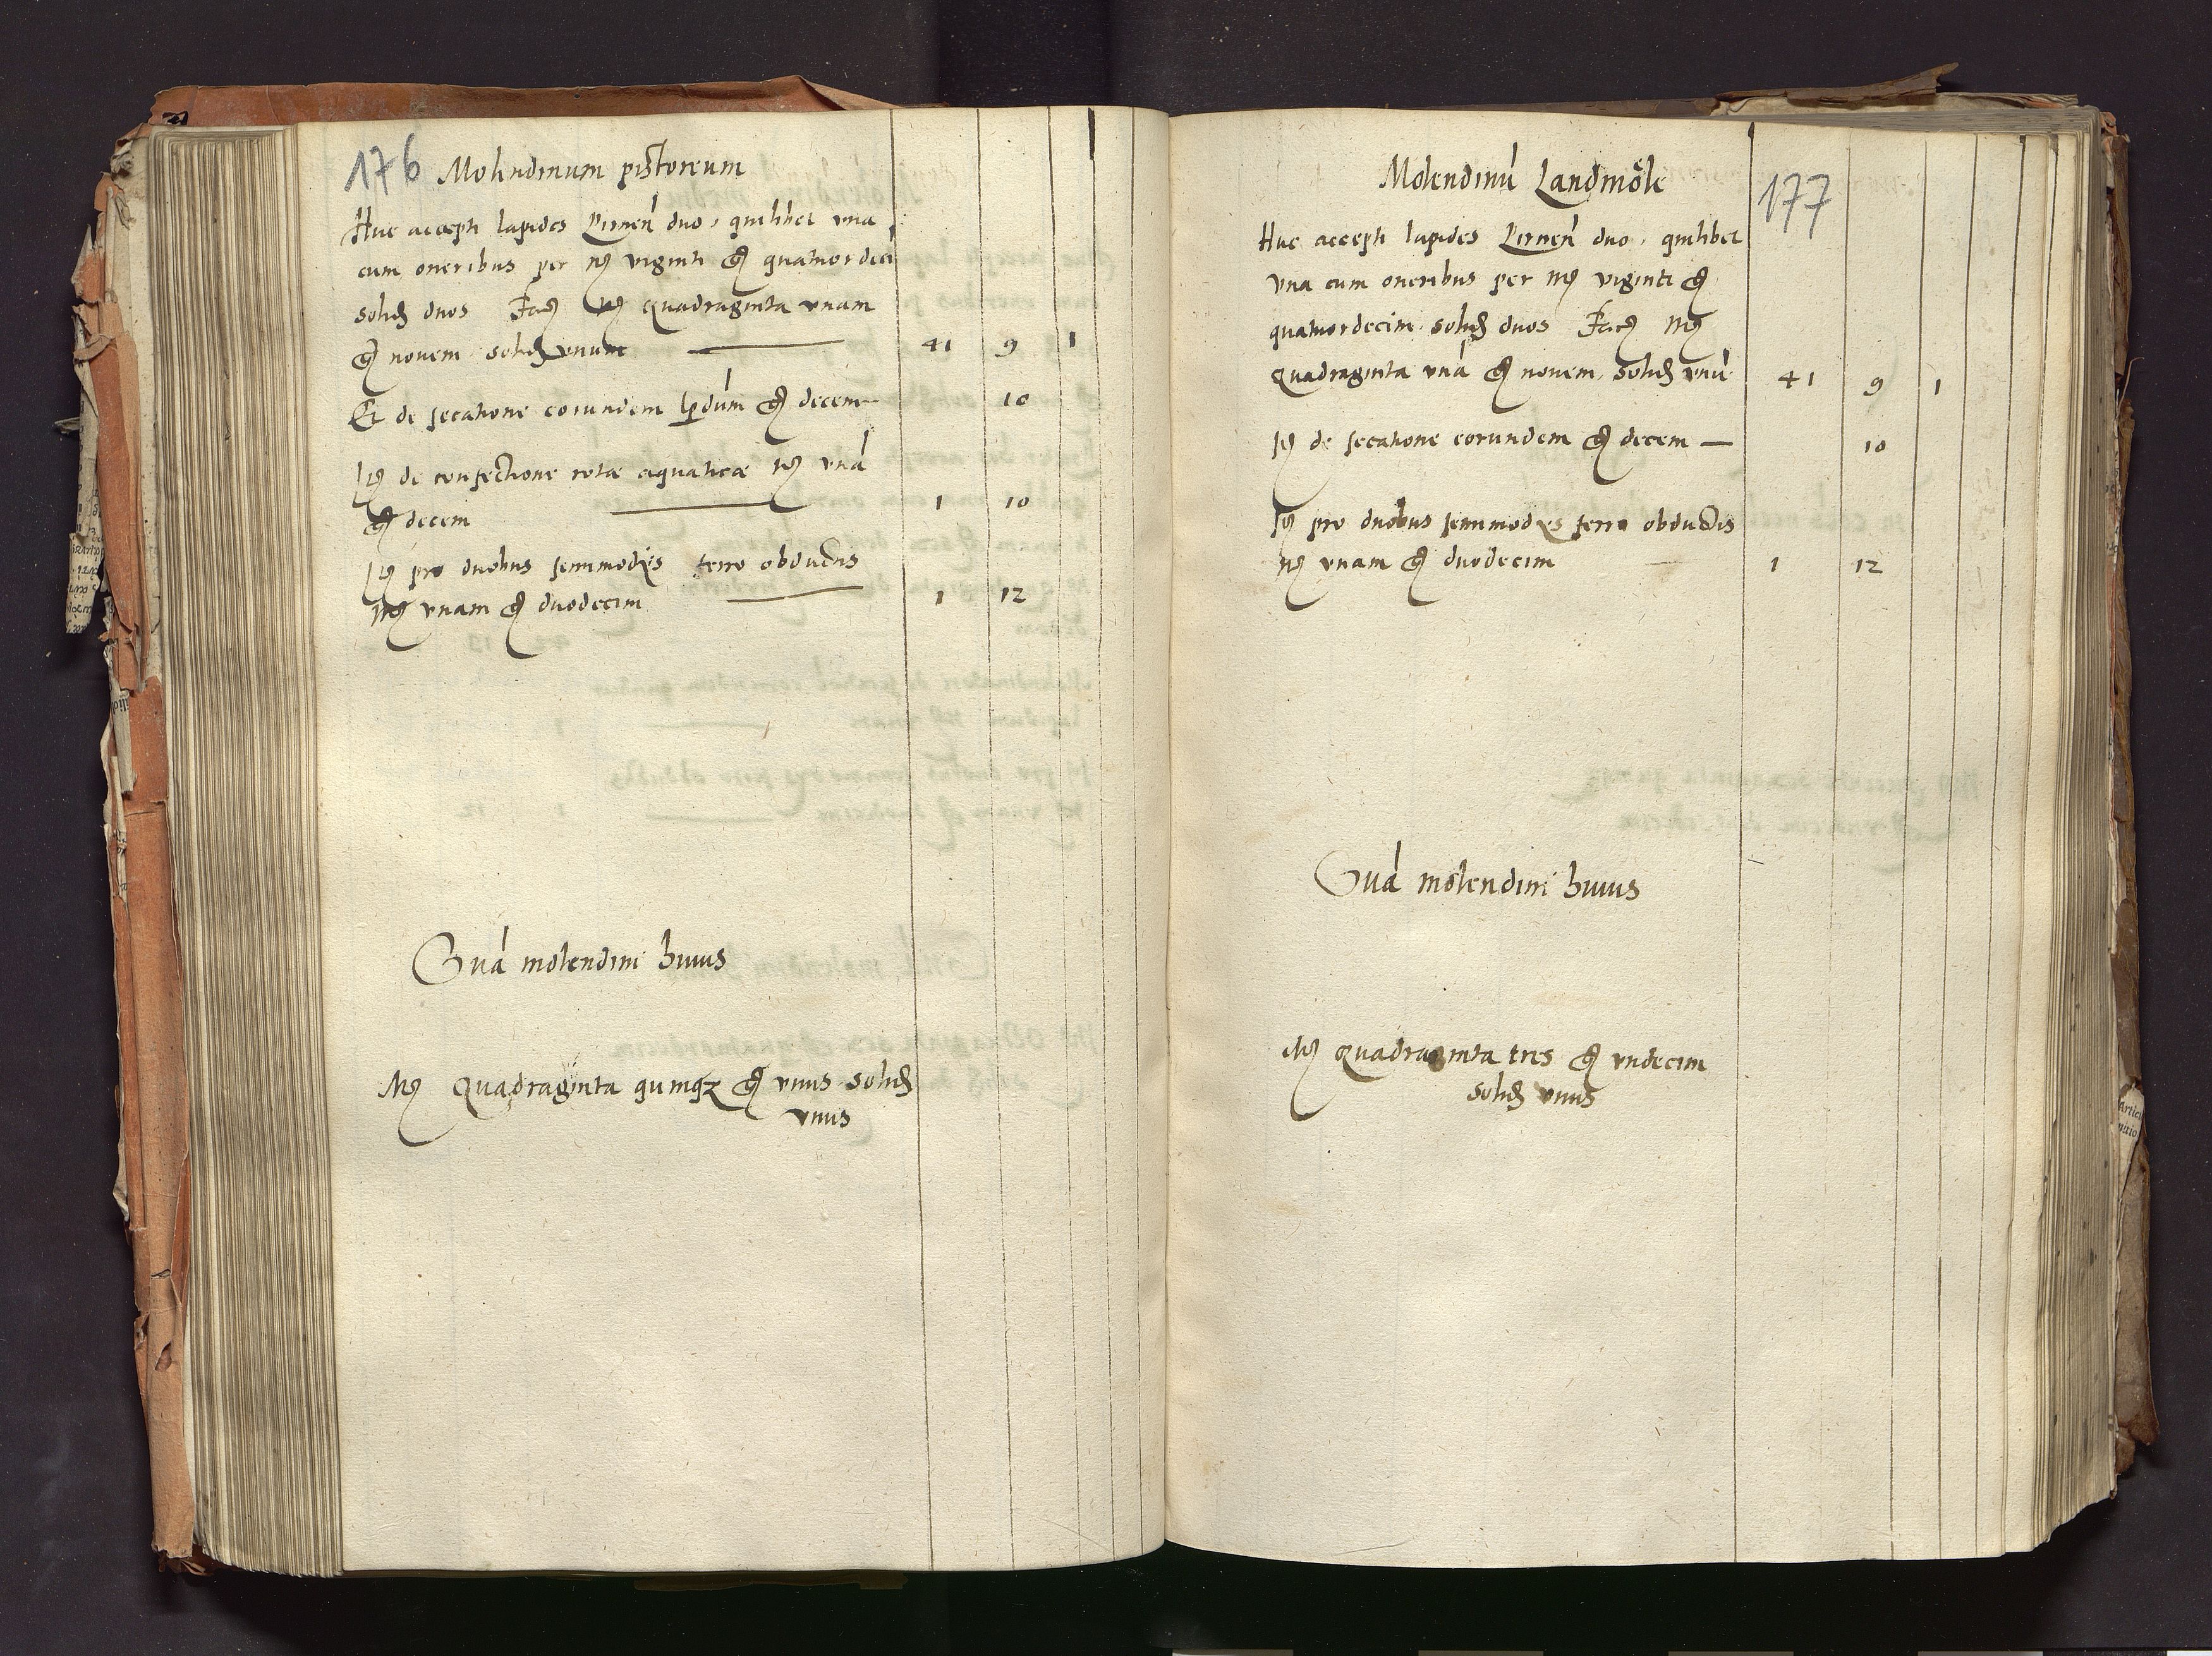 176 Molendinum pistoreum
Huc accepti lapides Pirnen̄ duo, quilibet vna
cum oneribus per mr̃ viginti gr̃ quatuordecī
solid̃ duos Facit mr̃ Quadraginta vnam
gr̃ novem solid̃ vnum — 41 9 1
Et de secatione eorundem lapidum gr̃ decem 10
It̃ de confectione rotæ aquaticæ mr̃ vnā
gr̃ decem — 1 10
It̃ pro duobus semimodijs ferro obductis
mr̃ vnam gr̃ duodecim — 1 12
Suā molendini huius
Mr̃ Quadraginta quinqz gr̃ vnus solid̃
vnus
Molendinū Landmöle 177
Huc accepti lapides Pirnen̄ duo, quilibet
vna cum oneribus per mr̃ viginti gr̃
quatuordecim solid̃ duos Facit mr̃
Quadraginta vnā gr̃ novem, solid̃ vnū 41 9 1
It̃ de secatione eorundem gr̃ decem — 10
It̃ pro duobus semimodijs ferro obductis
mr̃ vnam gr̃ duodecim — 1 12
Suā molendini huius
Mr̃ Quadraginta tres gr̃ vndecim
solid̃ vnus